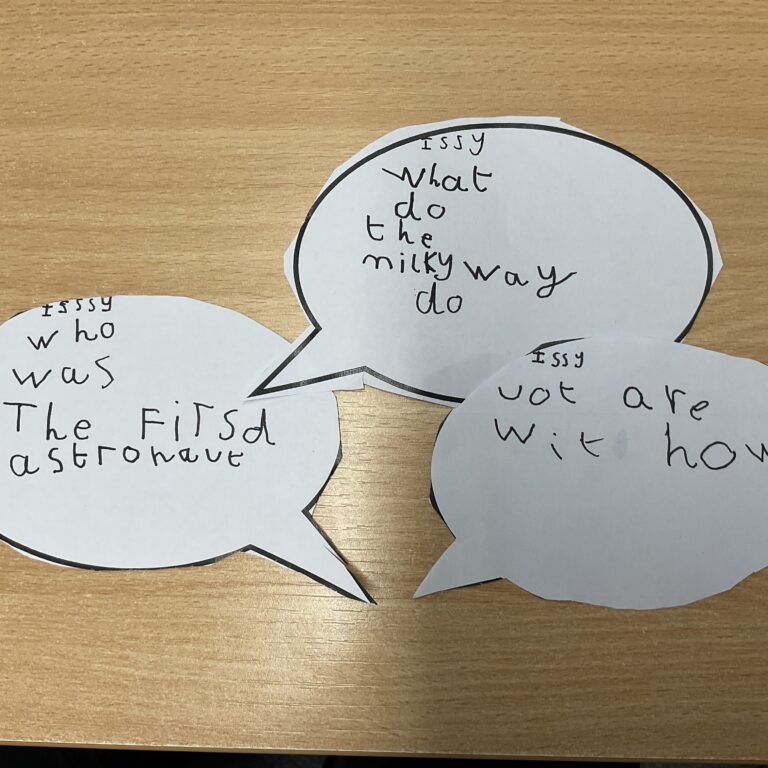 Issy
what
do
the
milky way
do
Isssy
who
was
The Firsd
astronaut
Issy
vot are
wit how